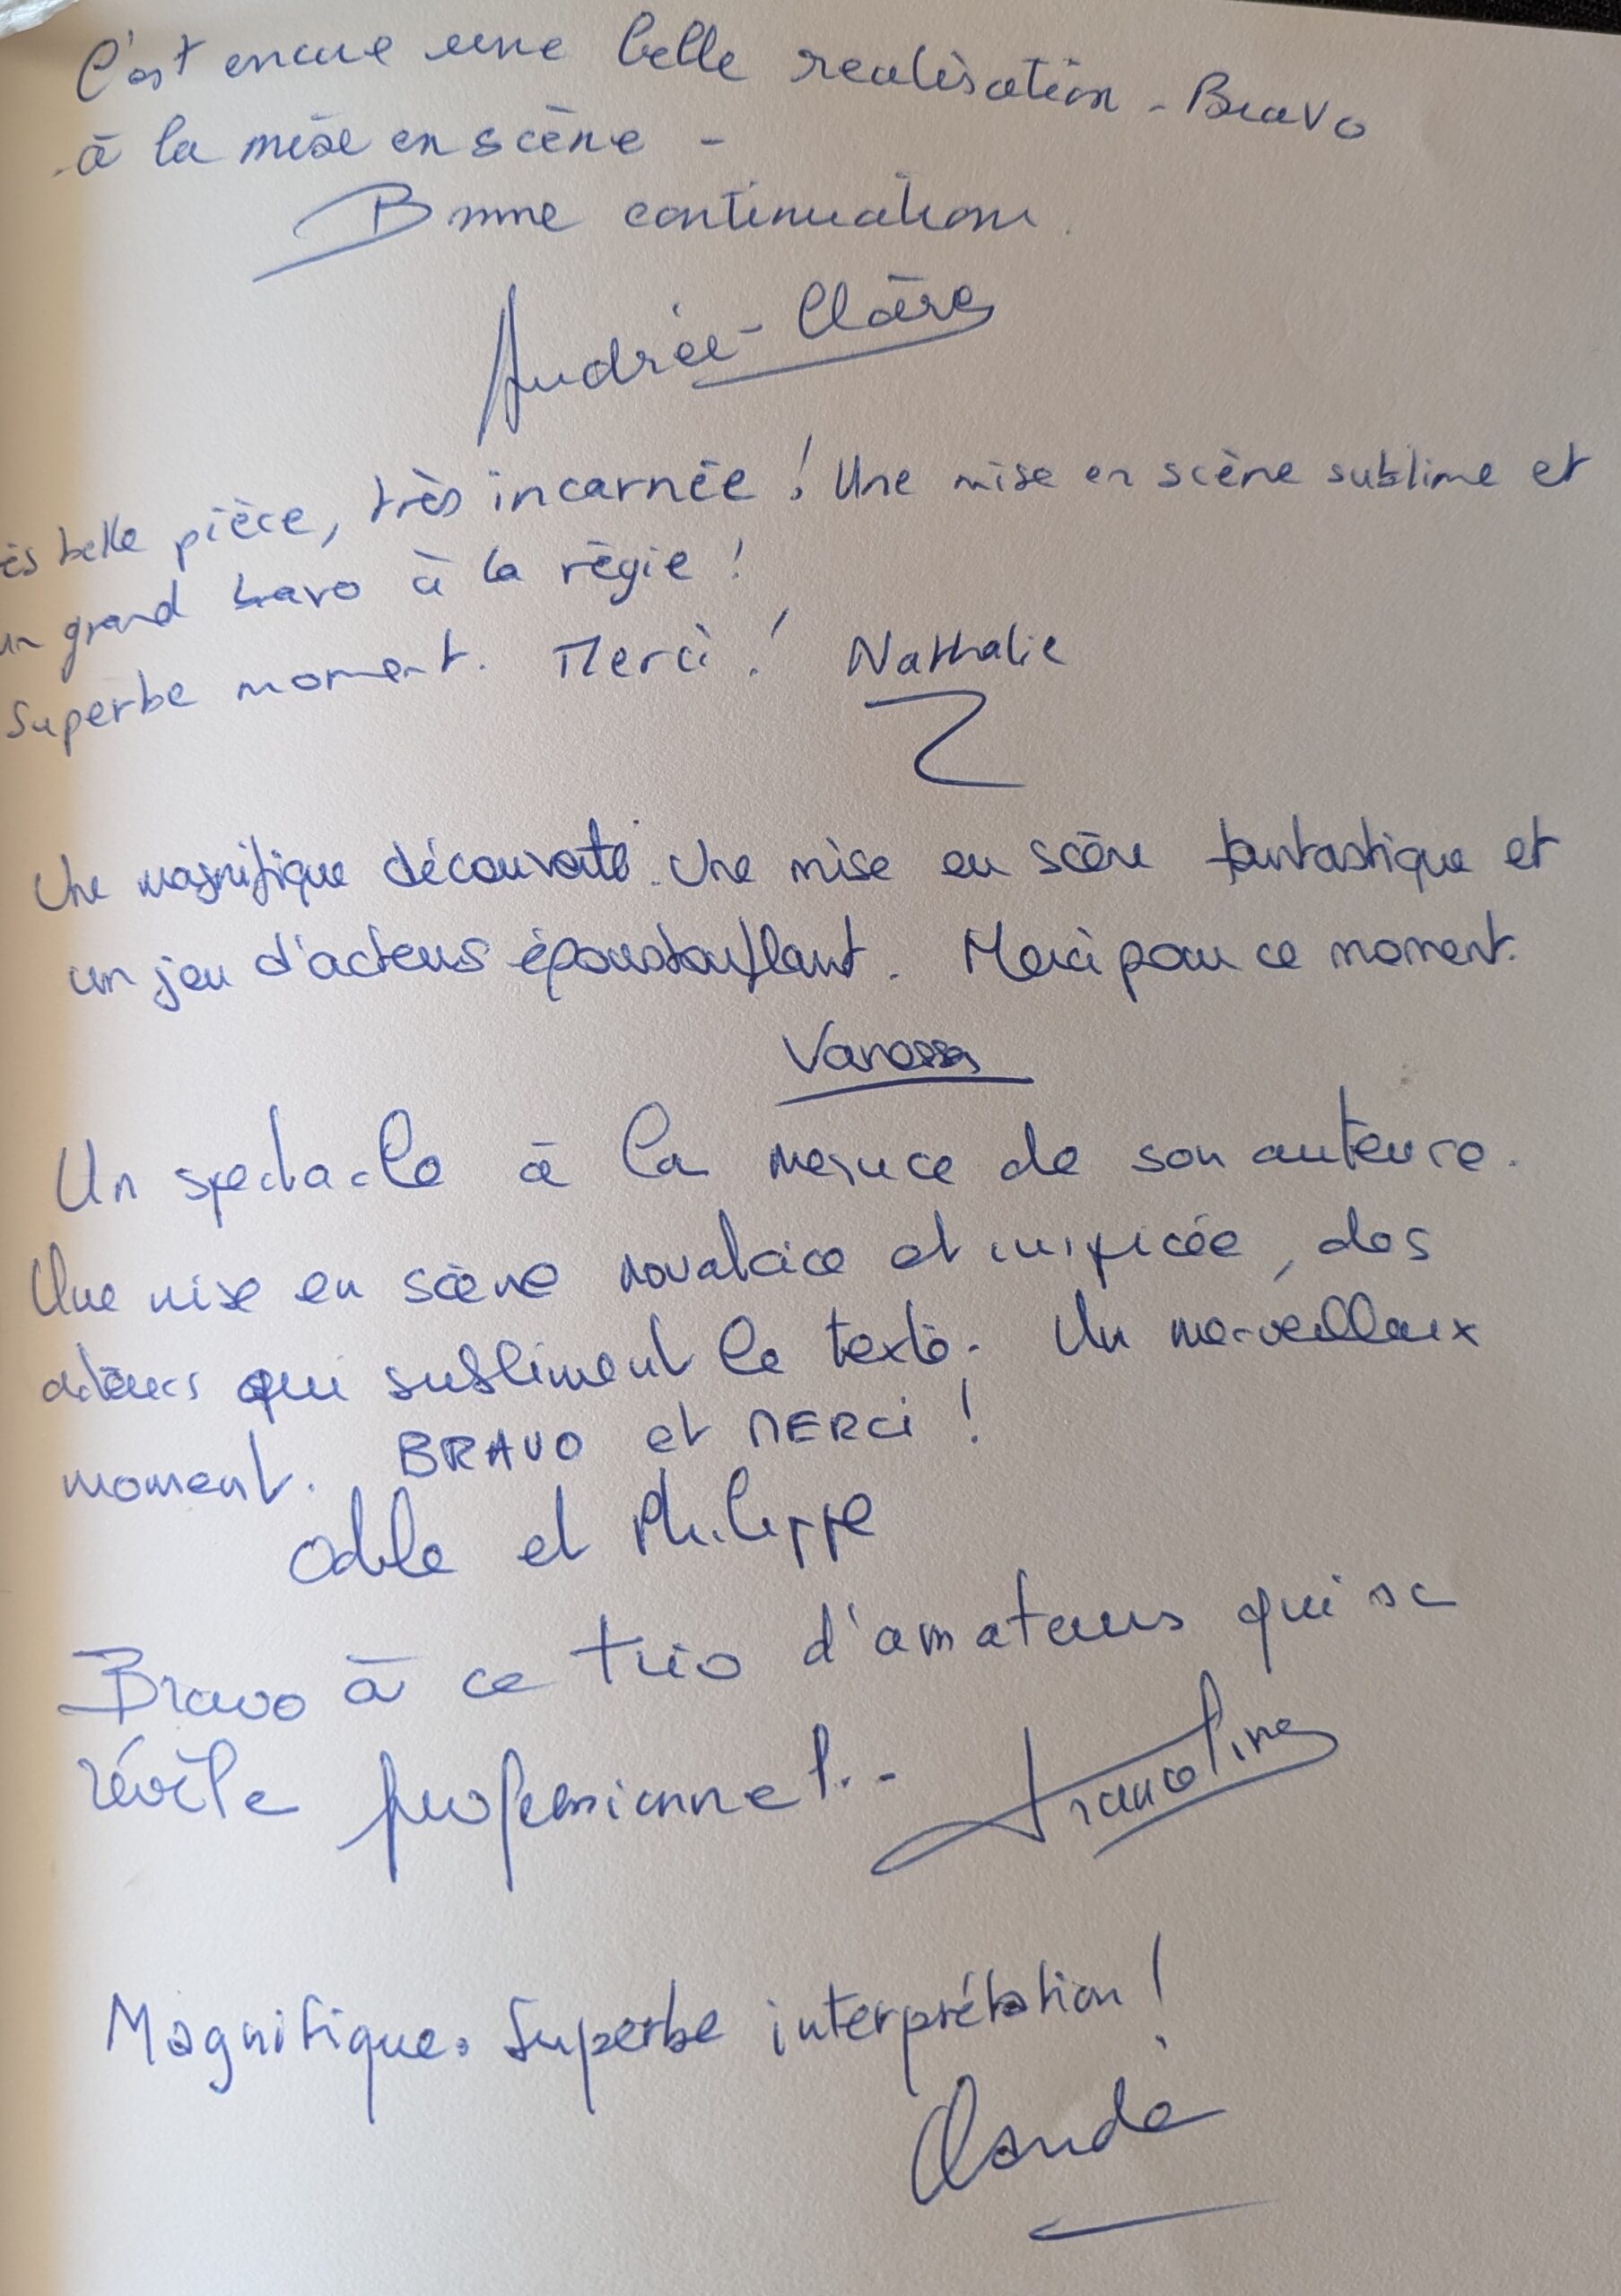 C'est encore une belle realisation - Bravo
à la mise en scène -
Bonne continuation.
Andrée-Claire
ès belle pièce, très incarnée ! Une mise en scène sublime et
un grand bravo à la régie !
Superbe moment. Merci ! Nathalie
Une magnifique découverte. Une mise en scène fantastique et
un jeu d'acteurs époustouflant. Merci pour ce moment.
Vanessa
Un spectacle à la mesure de son auteure.
Une mise en scène novatrice et inspirée, des
acteurs qui subliment le texte. Un merveilleux
moment. BRAVO et MERCI !
Odile et Philippe
Bravo à ce trio d'amateurs qui se
révèle professionnel..
Francoline
Magnifique. Superbe interprétation !
Claude